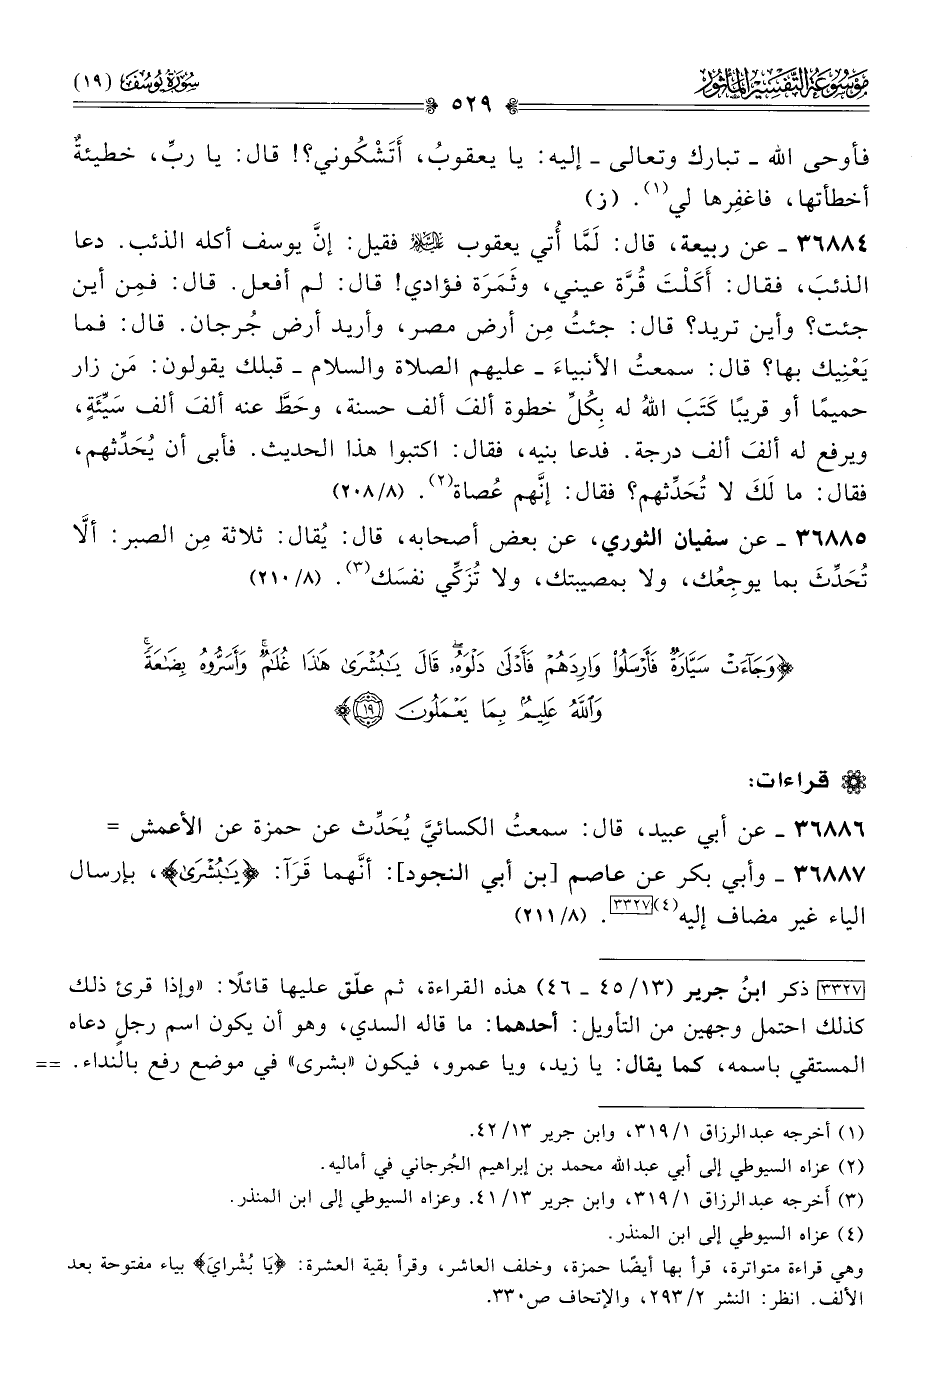 موسوعة التفسير المأثور
سورة يوسف (١٩)
٥٢٩
فأوحى الله ـ تبارك وتعالى ـ إليه: يا يعقوبُ، أَتَشْكُوني؟! قال: يا ربِّ، خطيئةٌ
أخطأتها، فاغفِرها لي(١). (ز)
٣٦٨٨٤ ـ عن ربيعة، قال: لَمَّا أُتي يعقوب عليه السلام فقيل: إنَّ يوسف أكله الذئب. دعا
الذئبَ، فقال: أَكَلْتَ قُرَّة عيني، وثَمَرَة فؤادي! قال: لم أفعل. قال: فمِن أين
جئت؟ وأين تريد؟ قال: جئتُ مِن أرض مصر، وأريد أرض جُرجان. قال: فما
يَعْنِيك بها؟ قال: سمعتُ الأنبياءَ ـ عليهم الصلاة والسلام ـ قبلك يقولون: مَن زار
حميمًا أو قريبًا كَتَبَ اللهُ له بِكُلِّ خطوة ألفَ ألف حسنة، وحَطَّ عنه ألفَ ألف سَيِّئَةٍ،
ويرفع له ألفَ ألف درجة. فدعا بنيه، فقال: اكتبوا هذا الحديث. فأبى أن يُحَدِّثهم،
فقال: ما لَكَ لا تُحَدِّثهم؟ فقال: إنَّهم عُصاة(٢). (٢٠٨/٨)
٣٦٨٨٥ ـ عن سفيان الثوري، عن بعض أصحابه، قال: يُقال: ثلاثة مِن الصبر: ألَّا
تُحَدِّثَ بما يوجِعُك، ولا بمصيبتك، ولا تُزَكِّي نفسَك(٣). (٢١٠/٨)
﴿وَجَآءَتْ سَيَّارَةٌ فَأَرْسَلُوا۟ وَارِدَهُمْ فَأَدْلَىٰ دَلْوَهُۥۖ قَالَ يَـٰبُشْرَىٰ هَـٰذَا غُلَـٰمٌۚ وَأَسَرُّوهُ بِضَـٰعَةًۚ
وَٱللَّهُ عَلِيمٌۢ بِمَا يَعْمَلُونَ ١٩﴾
قراءات:
٣٦٨٨٦ ـ عن أبي عبيد، قال: سمعتُ الكسائيَّ يُحَدِّث عن حمزة عن الأعمش =
٣٦٨٨٧ ـ وأبي بكر عن عاصم [بن أبي النجود]: أنَّهما قَرَآ: ﴿يَـٰبُشْرَىٰ﴾، بإرسال
الياء غير مضاف إليه(٤)[٣٣٢٧]. (٢١١/٨)
[٣٣٢٧] ذكر ابنُ جرير (٤٥/١٣ ـ ٤٦) هذه القراءة، ثم علّق عليها قائلًا: «وإذا قرئ ذلك
كذلك احتمل وجهين من التأويل: أحدهما: ما قاله السدي، وهو أن يكون اسم رجلٍ دعاه
المستقي باسمه، كما يقال: يا زيد، ويا عمرو، فيكون «بشرى» في موضع رفع بالنداء. ==
(١) أخرجه عبدالرزاق ٣١٩/١، وابن جرير ٤٢/١٣.
(٢) عزاه السيوطي إلى أبي عبدالله محمد بن إبراهيم الجُرجاني في أماليه.
(٣) أخرجه عبدالرزاق ٣١٩/١، وابن جرير ٤١/١٣. وعزاه السيوطي إلى ابن المنذر.
(٤) عزاه السيوطي إلى ابن المنذر.
وهي قراءة متواترة، قرأ بها أيضًا حمزة، وخلف العاشر، وقرأ بقية العشرة: ﴿يَا بُشْرايَ﴾ بياء مفتوحة بعد
الألف. انظر: النشر ٢٩٣/٢، والإتحاف ص٣٣٠.